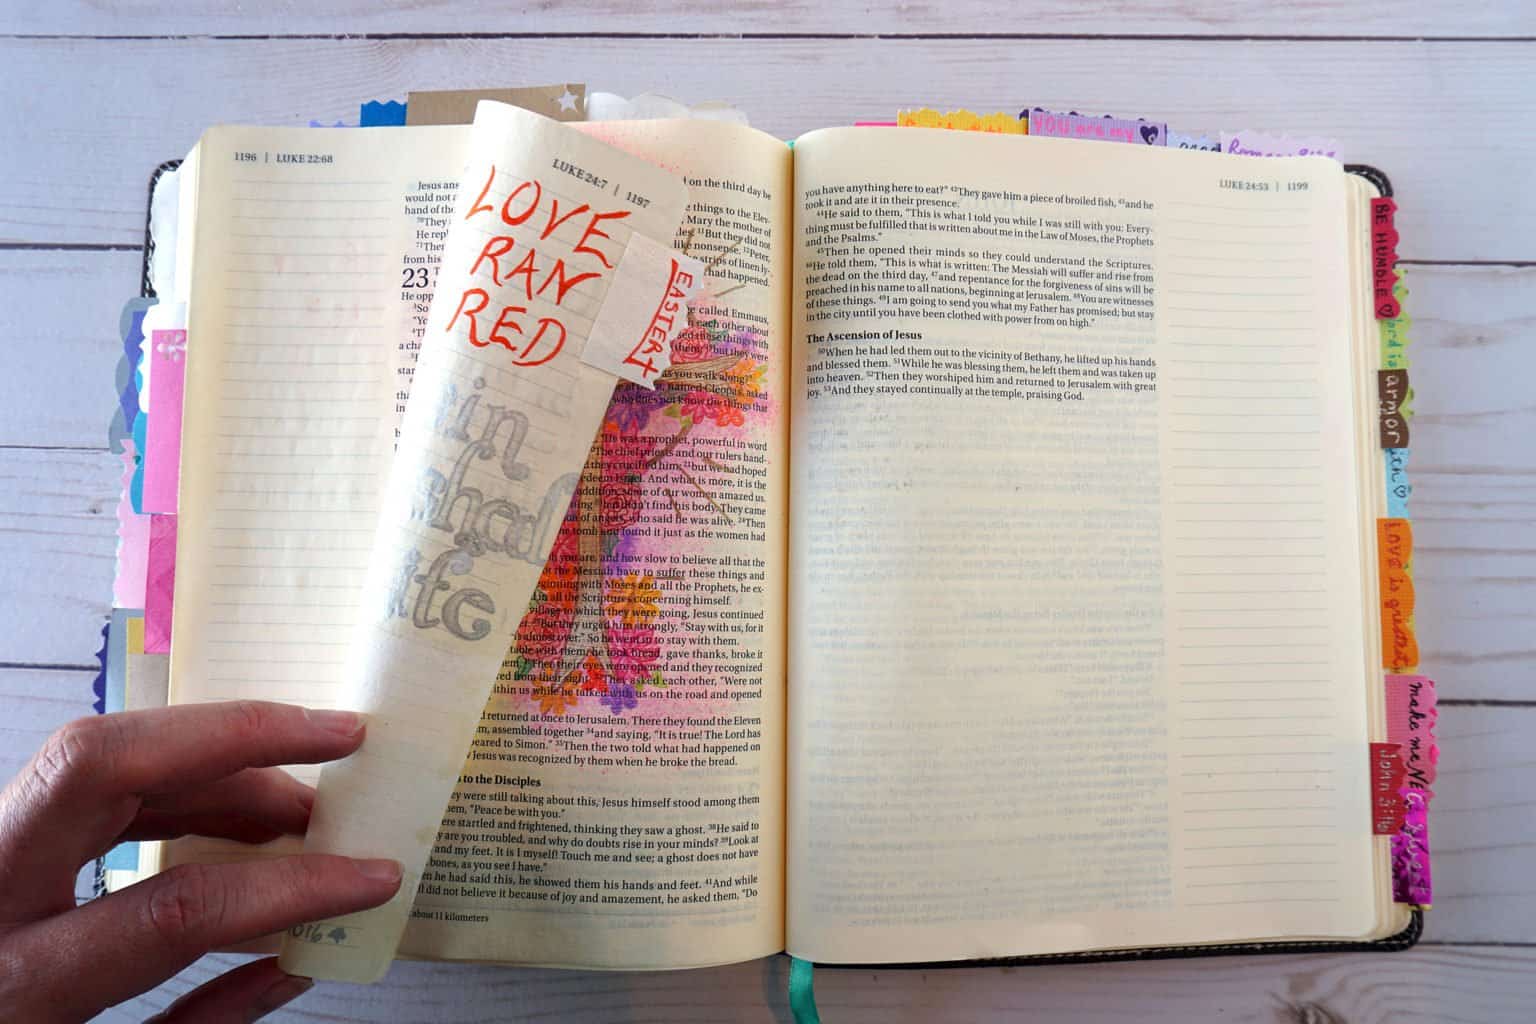 1196 | LUKE 22:68
Jesus ans
would not a
hand of the
They
He repl
Then
from his
23
He opp
So
LUKE 24:7 | 1197
LOVE
RAN
RED
EASTER
in
shed
life
on the third day be
things to the Elev-
Mary the mother of
But they did not
like nonsense. 12Peter,
strips of linen ly-
had happened.
called Emmaus,
each other about
these things with
but they were
as you walk along?"
named Cleopas, asked
who does not know the things that
"He was a prophet, powerful in word
The chief priests and our rulers hand-
they crucified him; 21but we had hoped
redeem Israel. And what is more, it is the
addition, some of our women amazed us.
didn't find his body. They came
of angels, who said he was alive. 24Then
tomb and found it just as the women had
you are, and how slow to believe all that the
the Messiah have to suffer these things and
beginning with Moses and all the Prophets, he ex-
in all the Scriptures concerning himself.
village to which they were going, Jesus continued
But they urged him strongly, "Stay with us, for it
is almost over." So he went in to stay with them.
table with them, he took bread, gave thanks, broke it
31Then their eyes were opened and they recognized
from their sight. 32They asked each other, "Were not
within us while he talked with us on the road and opened
returned at once to Jerusalem. There they found the Eleven
assembled together 34and saying, "It is true! The Lord has
appeared to Simon." 35Then the two told what had happened on
Jesus was recognized by them when he broke the bread.
to the Disciples
they were still talking about this, Jesus himself stood among them
"Peace be with you."
startled and frightened, thinking they saw a ghost. 38He said to
are you troubled, and why do doubts rise in your minds? 39Look at
and my feet. It is I myself! Touch me and see; a ghost does not have
bones, as you see I have."
he had said this, he showed them his hands and feet. 41And while
did not believe it because of joy and amazement, he asked them, "Do
about 11 kilometers
LUKE 24:53 | 1199
you have anything here to eat?" 42They gave him a piece of broiled fish, 43and he
took it and ate it in their presence.
44He said to them, "This is what I told you while I was still with you: Every-
thing must be fulfilled that is written about me in the Law of Moses, the Prophets
and the Psalms."
45Then he opened their minds so they could understand the Scriptures.
46He told them, "This is what is written: The Messiah will suffer and rise from
the dead on the third day, 47and repentance for the forgiveness of sins will be
preached in his name to all nations, beginning at Jerusalem. 48You are witnesses
of these things. 49I am going to send you what my Father has promised; but stay
in the city until you have been clothed with power from on high."
The Ascension of Jesus
50When he had led them out to the vicinity of Bethany, he lifted up his hands
and blessed them. 51While he was blessing them, he left them and was taken up
into heaven. 52Then they worshiped him and returned to Jerusalem with great
joy. 53And they stayed continually at the temple, praising God.
You are my
BE HUMBLE
armor
LOVE is greatest
make me NEW
John 3:16